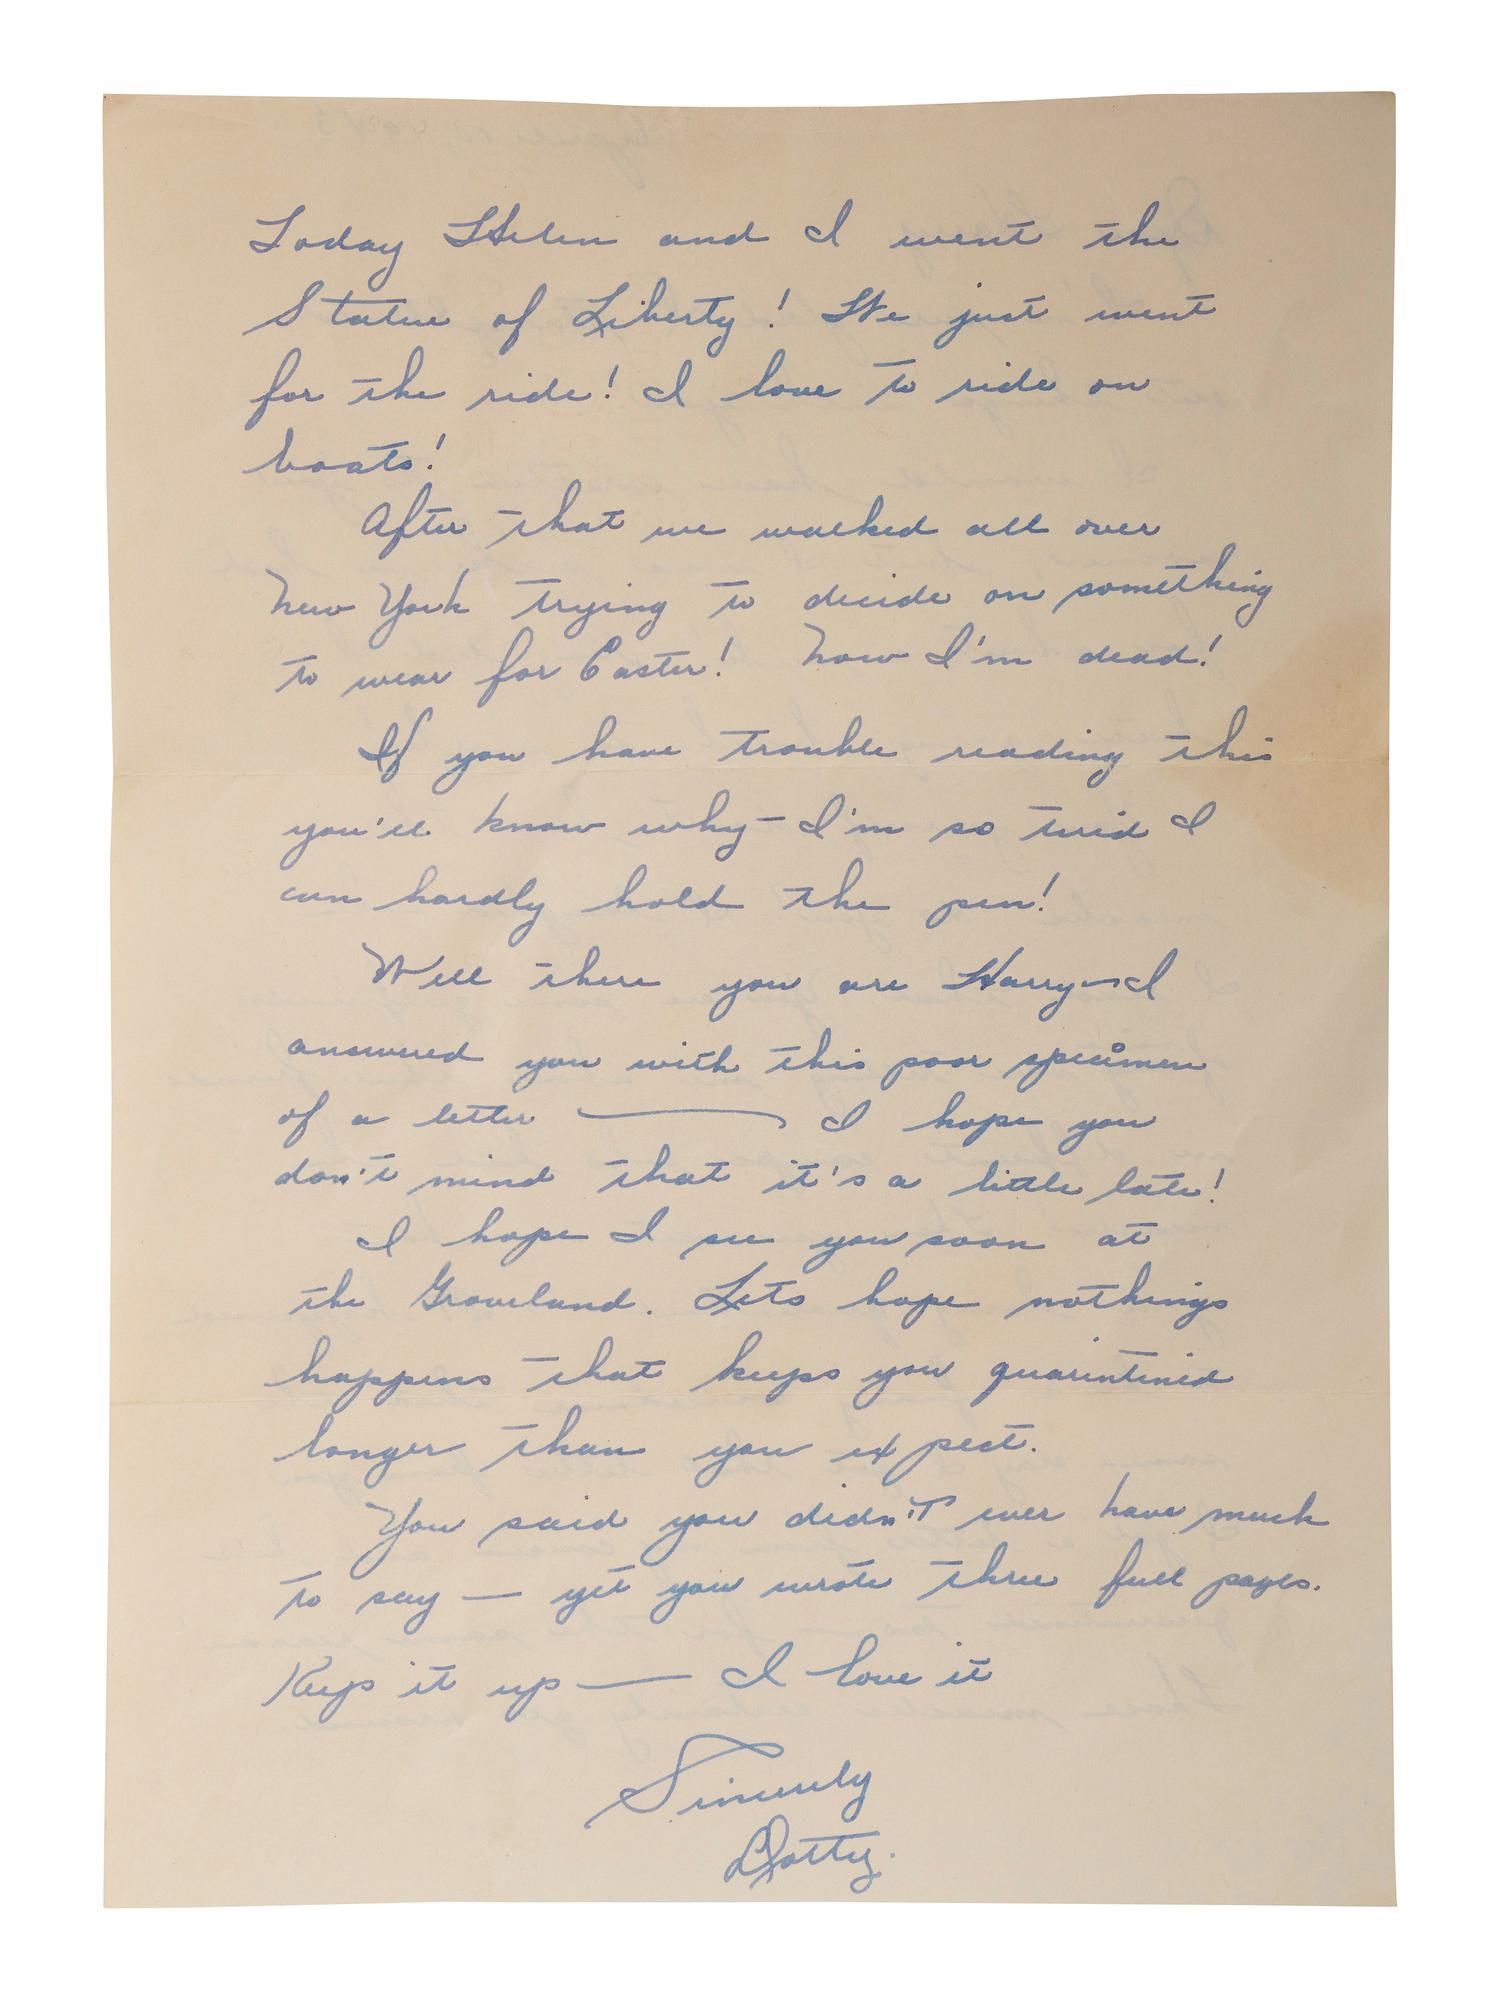 Today Helen and I went the
Statue of Liberty! We just went
for the ride! I love to ride on
boats!
After that we walked all over
New York trying to decide on something
to wear for Easter! Now I'm dead!
If you have trouble reading this
you'll know why - I'm so tired I
can hardly hold the pen!
Well there you are Harry - I
answered you with this poor specimen
of a letter — I hope you
don't mind that it's a little late!
I hope I see you soon at
the Groveland. Lets hope nothings
happens that keeps you quarintined
longer than you expect.
You said you didn't ever have much
to say — yet you wrote three full pages.
Keep it up — I love it
Sincerely
Dotty.